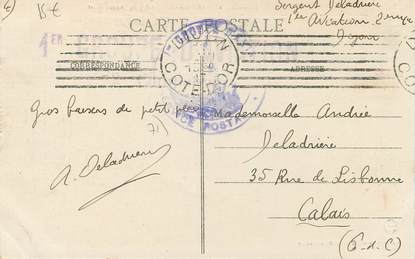 15€
CARTE POSTALE
Sergent Deladrière
1er
Dijon
CORRESPONDANCE
ADRESSE
DIJON
COTE-D'OR
POSTA
Gros baisers de petit père
71)
A. Deladrière
Mademoiselle Andrée
Deladrière
35 Rue de Lisbonne
Calais
(P-d-C)